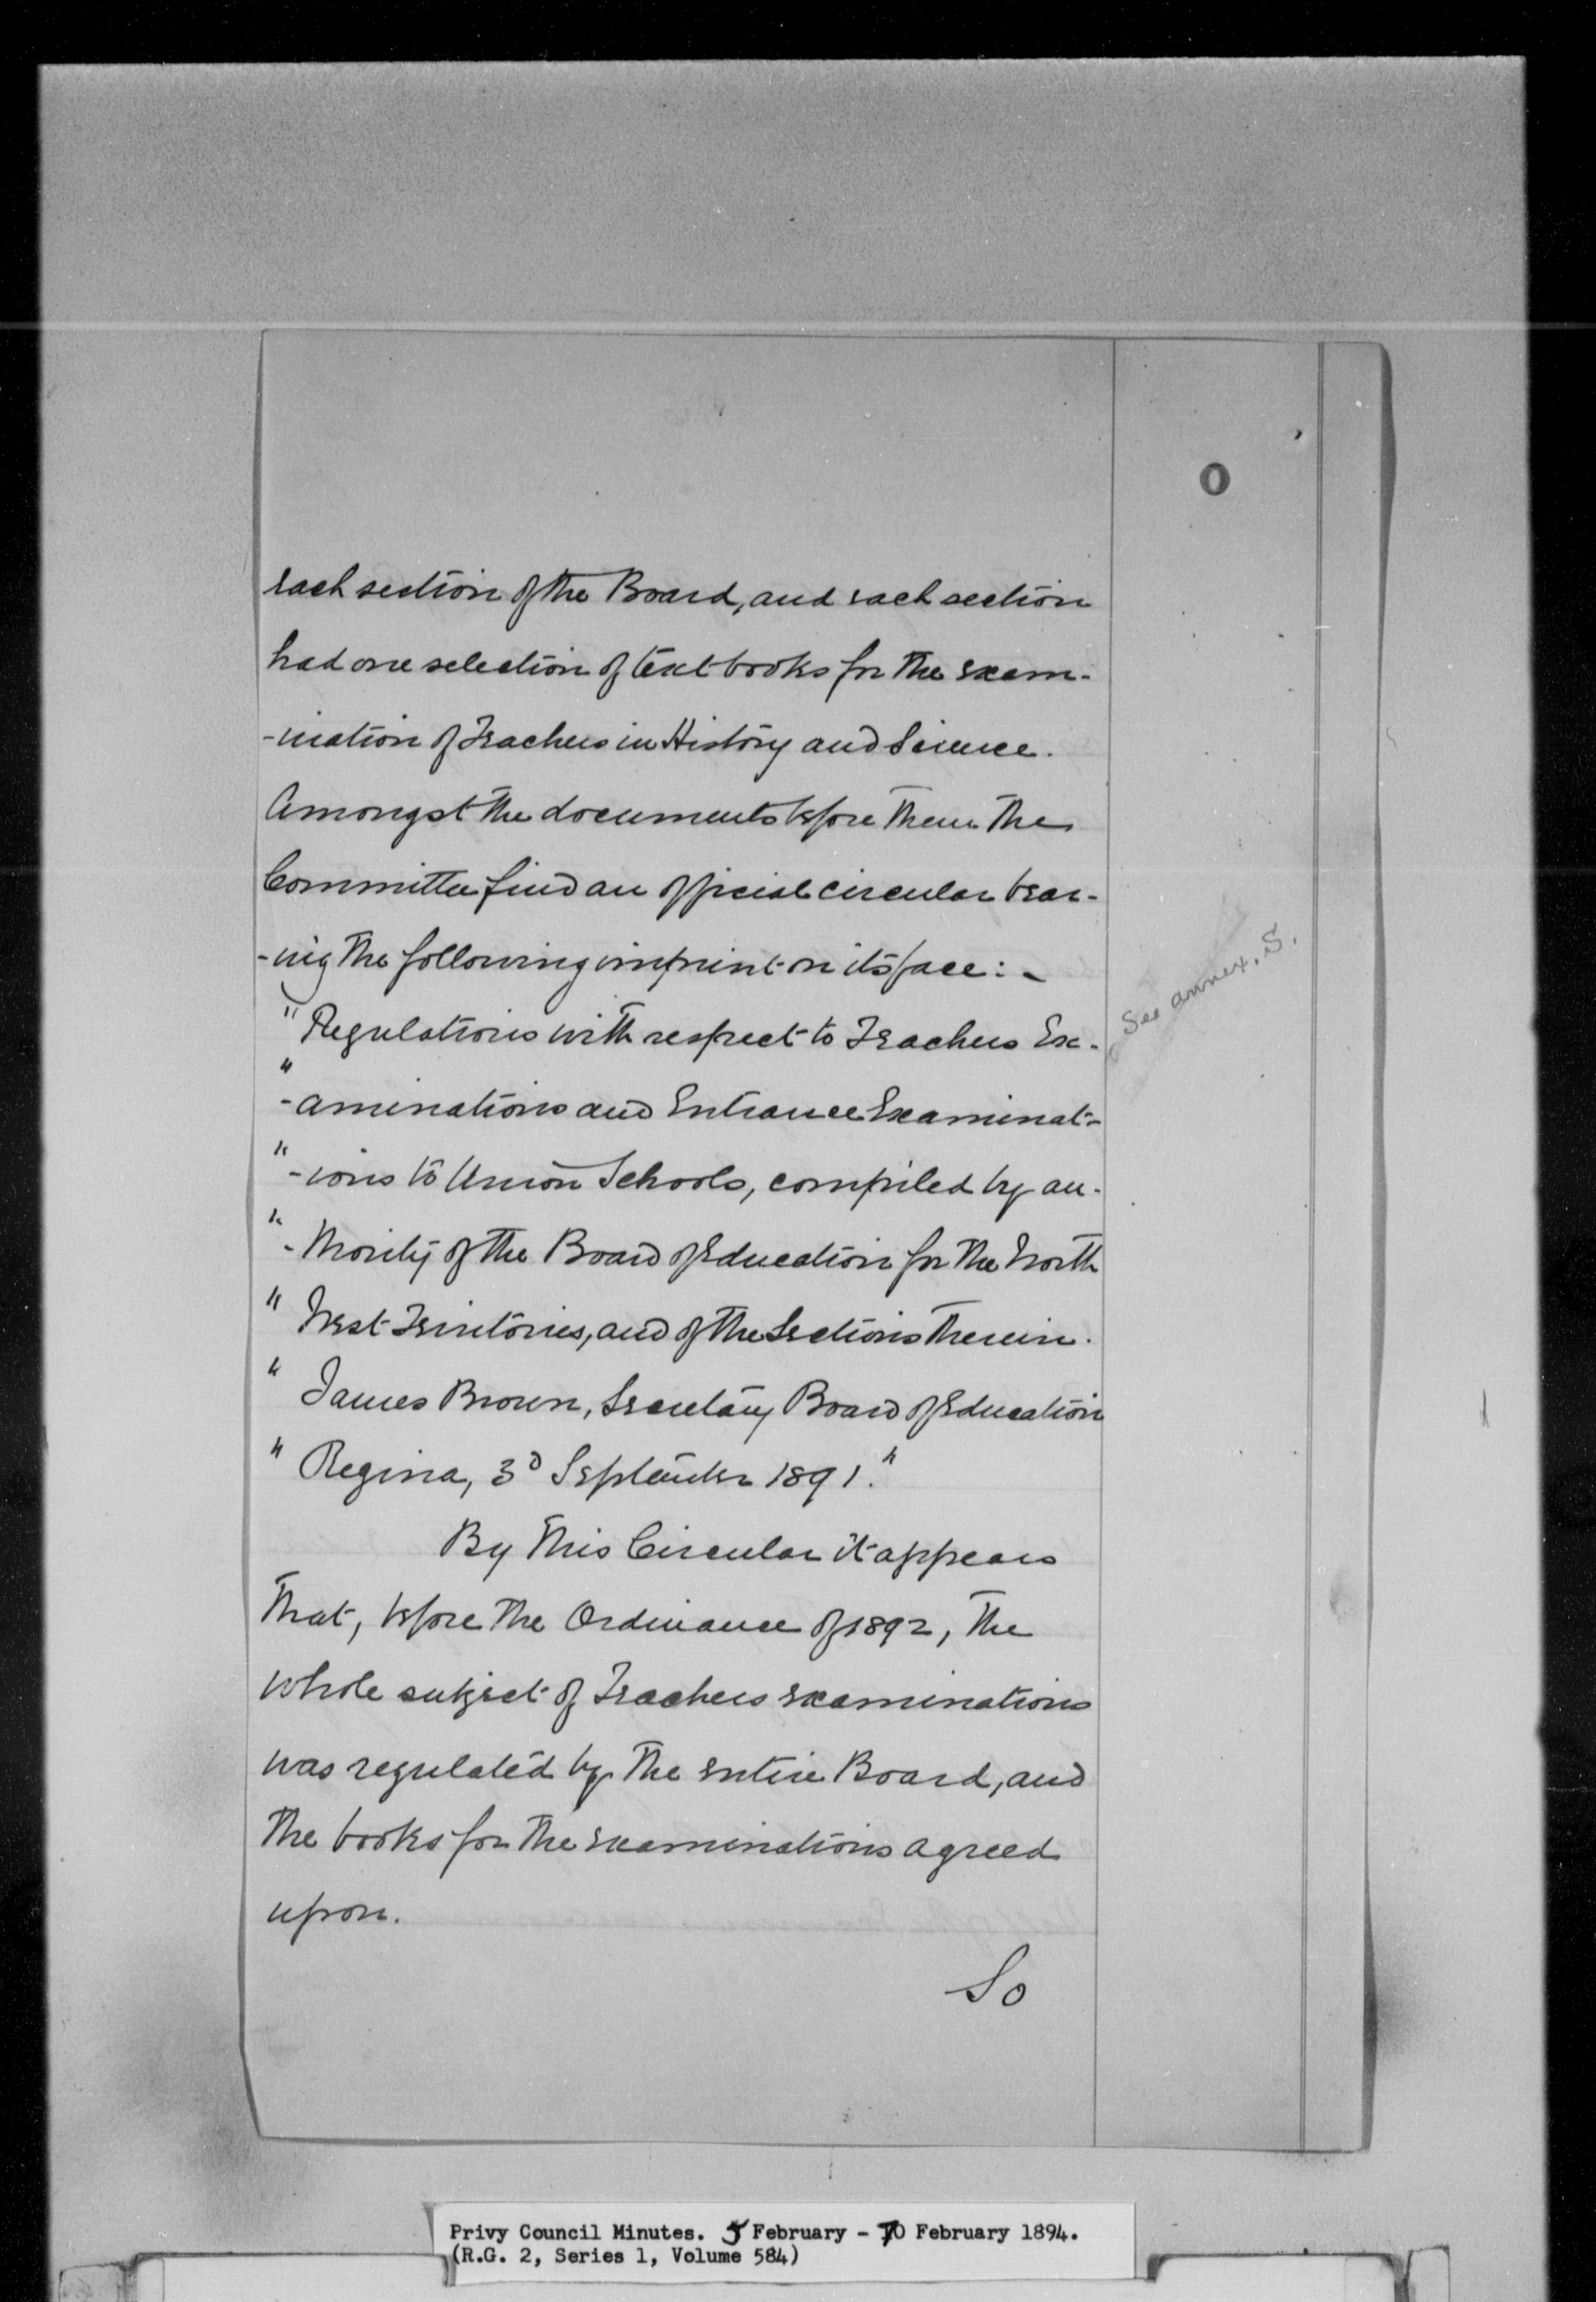 O
each section of the Board, and each section
had one selection of text books for the exam-
-ination of Teachers in History and Science.
Amongst the documents before them the
Committee find an official circular bear-
-ing the following imprint on its face:-
See annex, S.
"Regulations with respect to Teachers Ex-
" -aminations and Entrance Examinat-
" -ions to Union Schools, compiled by au-
" -thority of the Board of Education for the North
" West Territories, and of the Sections therein.
" James Brown, Secretary Board of Education
" Regina, 3d September 1891."
By this Circular it appears
that, before the Ordinance of 1892, the
whole subject of Teachers examinations
was regulated by the entire Board, and
the books for the examinations agreed
upon.
So
Privy Council Minutes. 5 February - 10 February 1894.
(R.G. 2, Series 1, Volume 584)